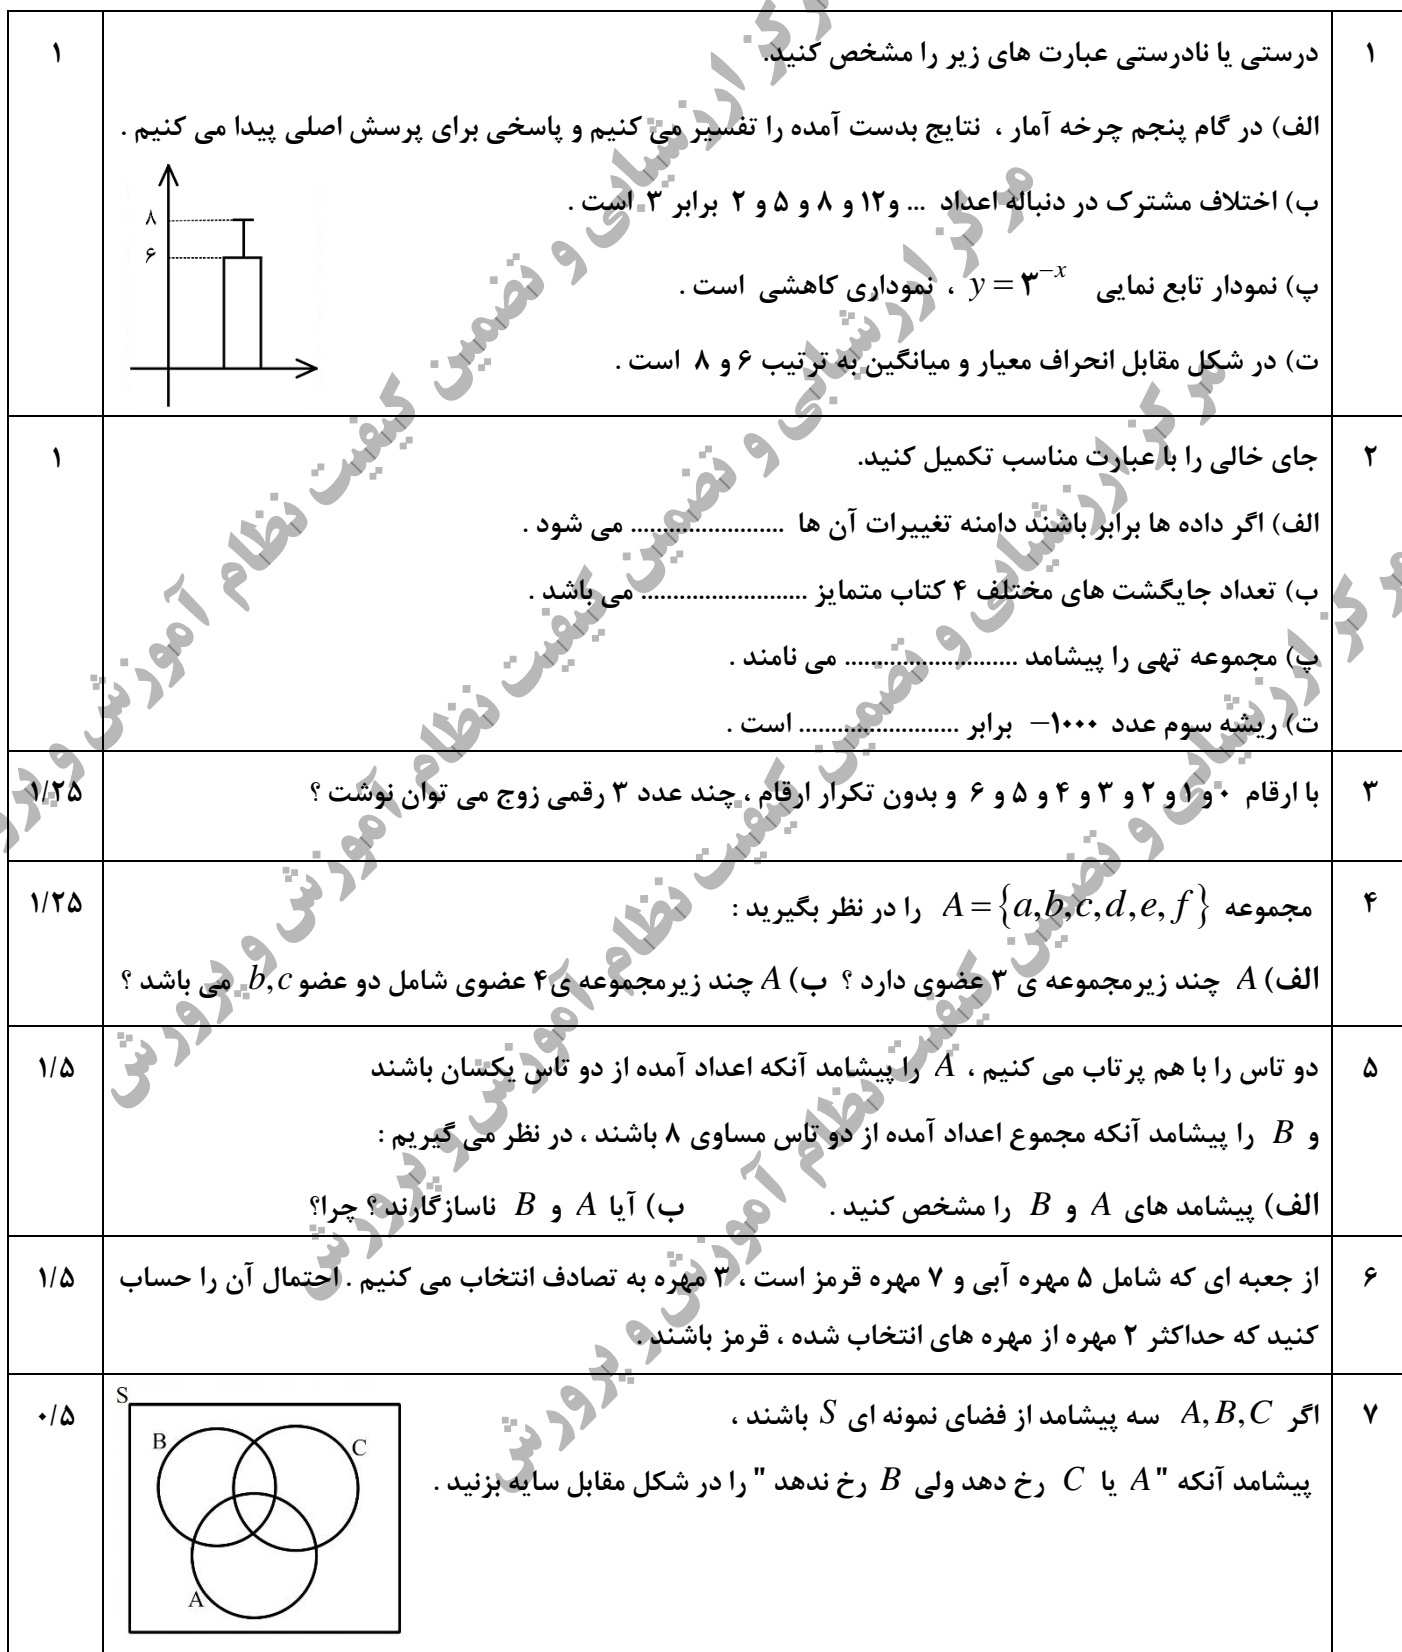 ۱ درستی یا نادرستی عبارت های زیر را مشخص کنید. ۱
الف) در گام پنجم چرخه آمار ، نتایج بدست آمده را تفسیر می کنیم و پاسخی برای پرسش اصلی پیدا می کنیم .
ب) اختلاف مشترک در دنباله اعداد ... و۱۲ و ۸ و ۵ و ۲ برابر ۳ است .
پ) نمودار تابع نمایی y = ۳^{-x} ، نموداری کاهشی است .
ت) در شکل مقابل انحراف معیار و میانگین به ترتیب ۶ و ۸ است .
۸
۶
۲ جای خالی را با عبارت مناسب تکمیل کنید. ۱
الف) اگر داده ها برابر باشند دامنه تغییرات آن ها ........................ می شود .
ب) تعداد جایگشت های مختلف ۴ کتاب متمایز .......................... می باشد .
پ) مجموعه تهی را پیشامد ........................... می نامند .
ت) ریشه سوم عدد ۱۰۰۰− برابر ......................... است .
۳ با ارقام ۰ و ۱ و ۲ و ۳ و ۴ و ۵ و ۶ و بدون تکرار ارقام ، چند عدد ۳ رقمی زوج می توان نوشت ؟ ۱/۲۵
۴ مجموعه A = {a,b,c,d,e,f} را در نظر بگیرید : ۱/۲۵
الف) A چند زیرمجموعه ی ۳ عضوی دارد ؟ ب) A چند زیرمجموعه ی۴ عضوی شامل دو عضو b,c می باشد ؟
۵ دو تاس را با هم پرتاب می کنیم ، A را پیشامد آنکه اعداد آمده از دو تاس یکشان باشند ۱/۵
و B را پیشامد آنکه مجموع اعداد آمده از دو تاس مساوی ۸ باشند ، در نظر می گیریم :
الف) پیشامد های A و B را مشخص کنید . ب) آیا A و B ناسازگارند ؟ چرا؟
۶ از جعبه ای که شامل ۵ مهره آبی و ۷ مهره قرمز است ، ۳ مهره به تصادف انتخاب می کنیم . احتمال آن را حساب ۱/۵
کنید که حداکثر ۲ مهره از مهره های انتخاب شده ، قرمز باشند .
۷ اگر A,B,C سه پیشامد از فضای نمونه ای S باشند ، ۰/۵
پیشامد آنکه "A یا C رخ دهد ولی B رخ ندهد " را در شکل مقابل سایه بزنید .
S
B
C
A
مرکز ارزشیابی و تضمین کیفیت نظام آموزش و پرورش
مرکز ارزشیابی و تضمین کیفیت نظام آموزش و پرورش
مرکز ارزشیابی و تضمین کیفیت نظام آموزش و پرورش
مرکز ارزشیابی و تضمین کیفیت نظام آموزش و پرورش